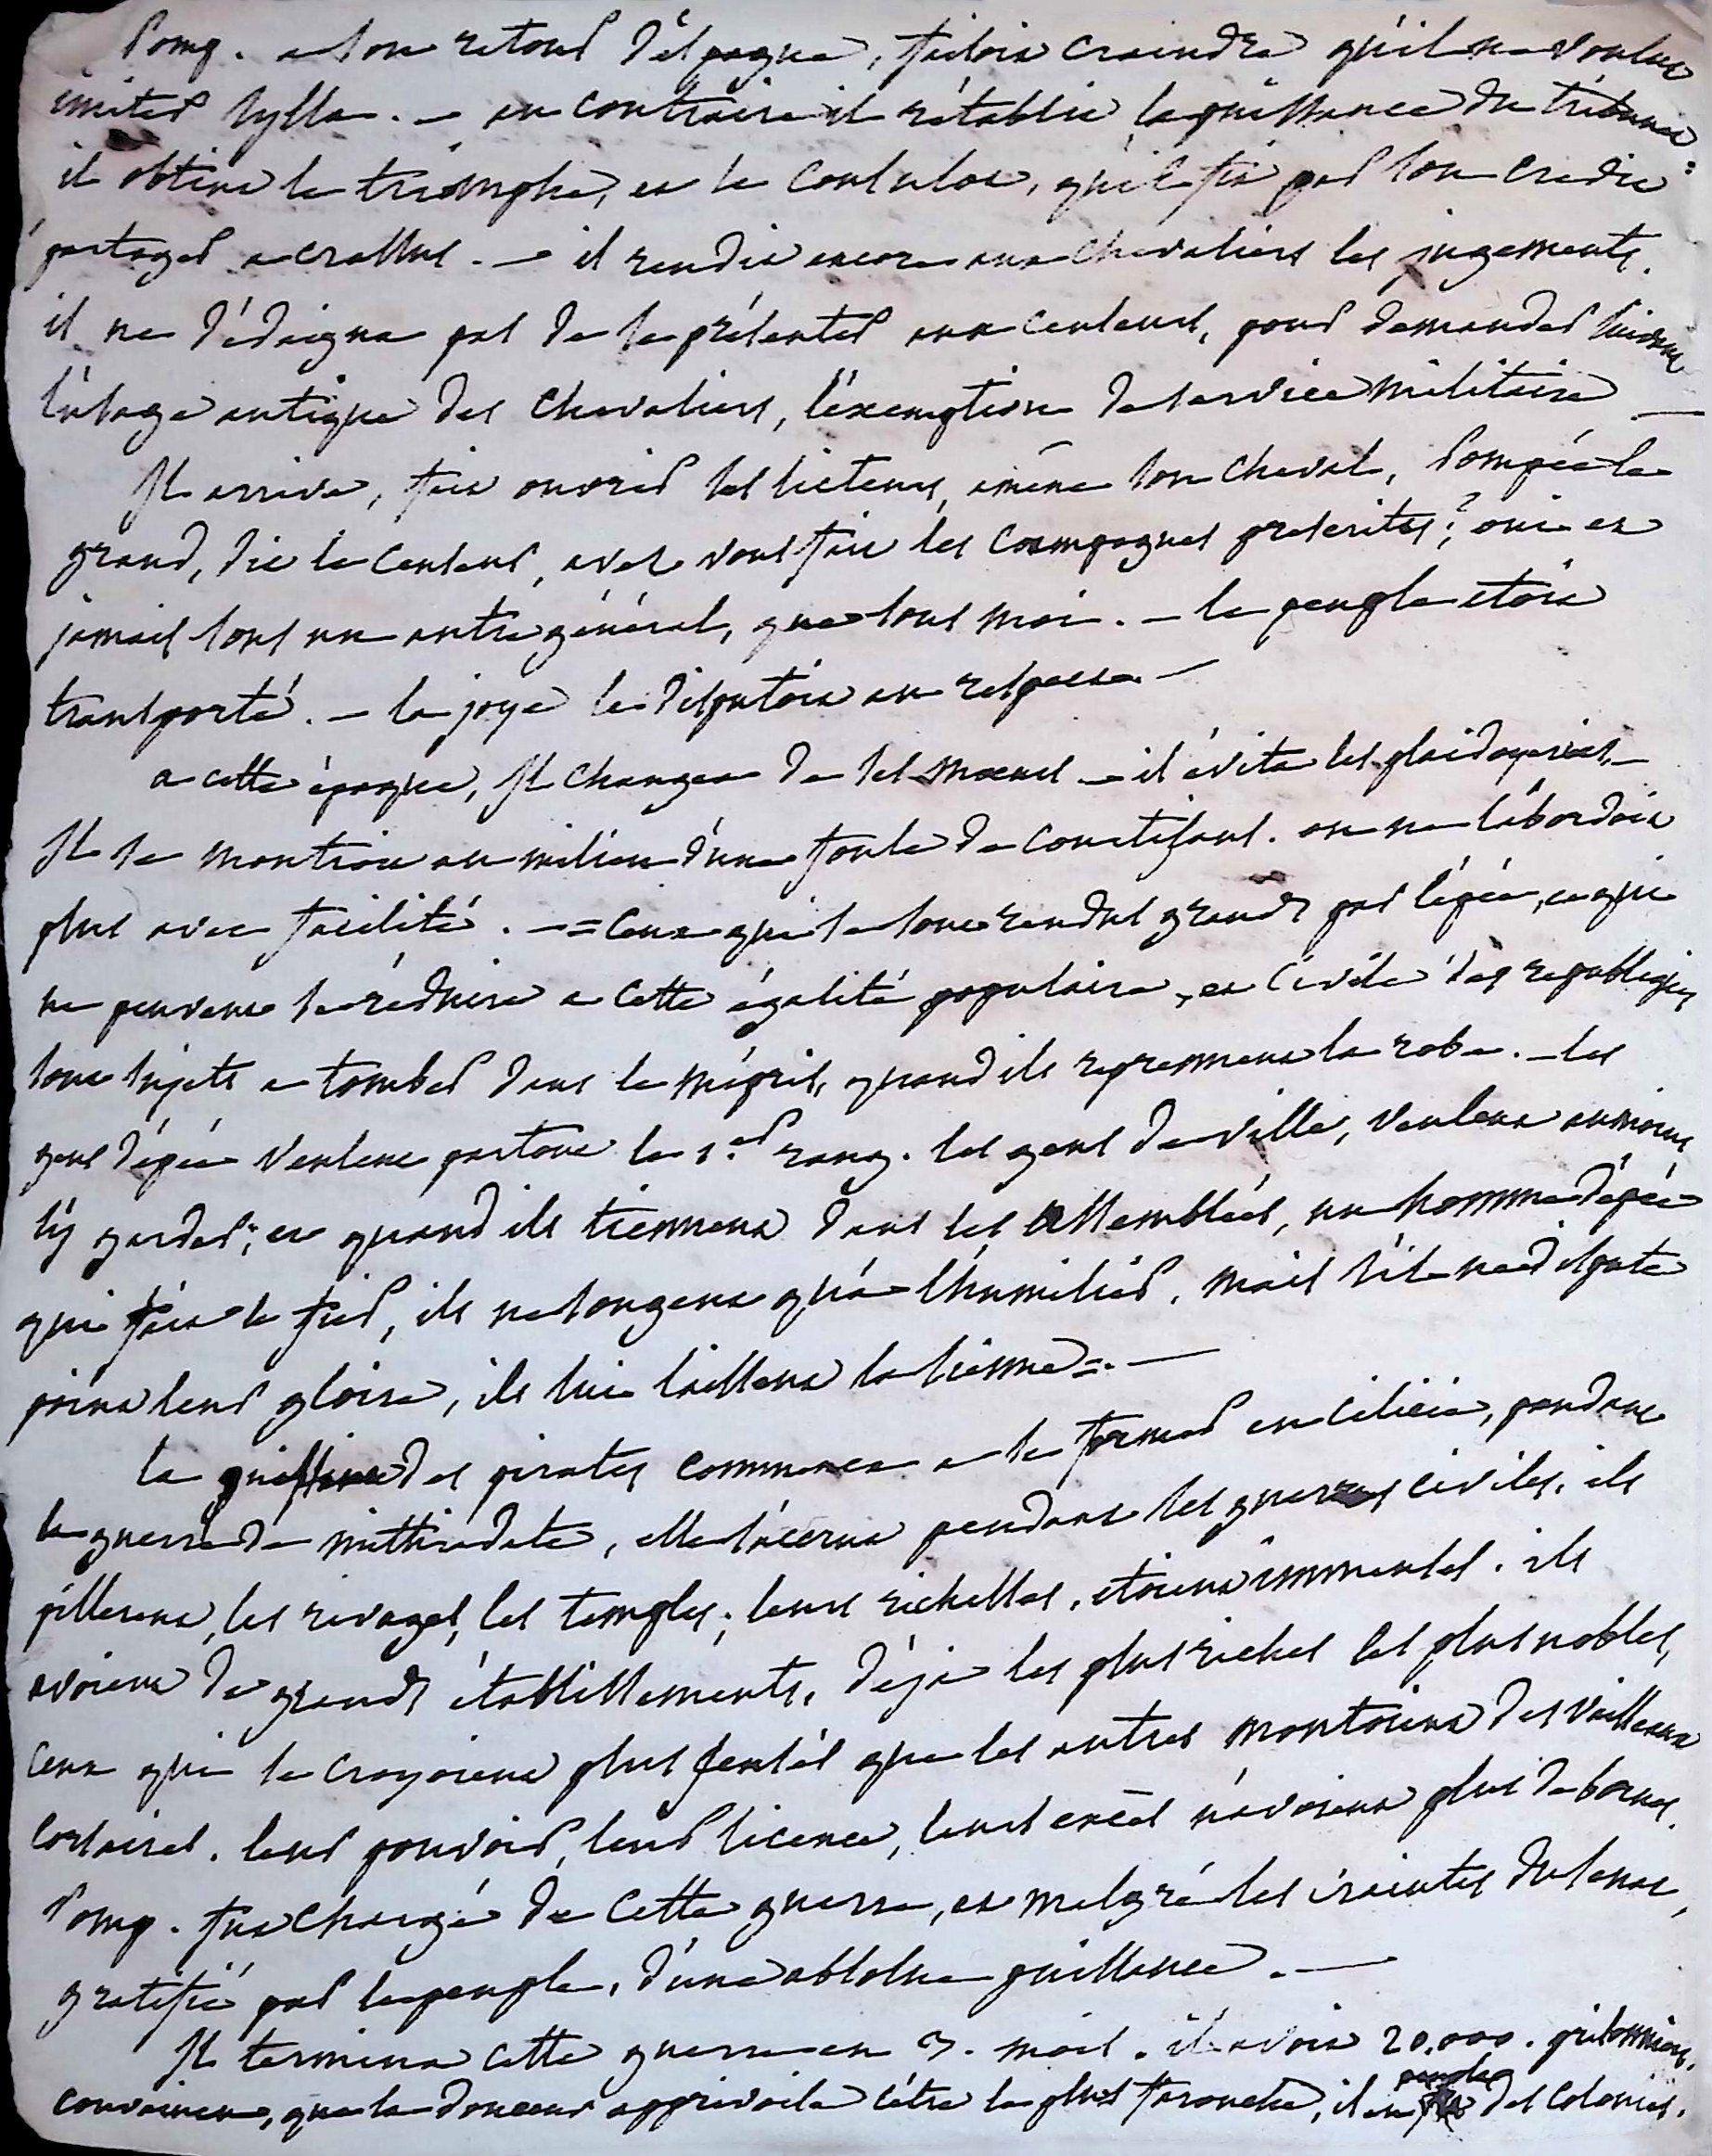 Pomp. a son retour d'espagne, faisoit craindre qu'il ne voulut
imiter Sylla. — au contraire il rétablit la puissance du tribunat :
il obtint le triomphe, et le consulat, qu'il fit par son credit
partager a crassus. — il rendit encore aux chevaliers les jugements.
il ne dédaigna pas de se présenter aux censeurs, pour demander suivant
l'usage antique des chevaliers, l'éxemption de service militaire —
Il arrive, fait ouvrir ses licteurs, amène son cheval, Pompée le
grand, dit le censeur, avez vous fait les campagnes prescrites ? oui et
jamais sous un autre général, que sous moi. — le peuple etoit
transporté. — la joye le disputoit au respect. —
a cette époque, Il changea de ses mœurs — il évita les plaidoyeries. —
Il se montroit au milieu d'une foule de courtisans. on ne l'abordoit
plus avec facilité. — = Ceux qui se sont rendus grands par l'épée, et qui
ne peuvent se réduire a cette égalité populaire, et civile des republiques
sont sujets a tomber dans le mépris, quand ils reprennent la robe. — les
gens d'épée veulent partout le 1.er rang. les gens de ville, veulent aumoins
l'y garder ; et quand ils tiennent dans les assemblées, un homme d'épée
qui fait le fier, ils ne songent qu'à l'humilier. mais s'il ne dispute
point leur gloire, ils lui laissent la sienne =. —
la puissance des pirates commença a se former en cilicie, pendant
la guerre de mithridate, elle s'accrut pendant les guerres civiles. ils
pillerent, les rivages, les temples ; leurs richesses, etoient immenses. ils
avoient de grands établissements. déja les plus riches les plus nobles,
ceux qui se croyoient plus sensés que les autres montoient des vaisseaux
corsaires. leur pouvoir, leur licence, leurs excès n'avoient plus de bornes.
Pomp. fut chargé de cette guerre, et malgré les craintes du senat,
gratifié par le peuple, d'une absolue puissance. —
Il termina cette guerre en 3. mois. il avoit 20.000. prisonniers.
convaincu, que la douceur apprivoise l'être le plus farouche, il en peupla des colonies.